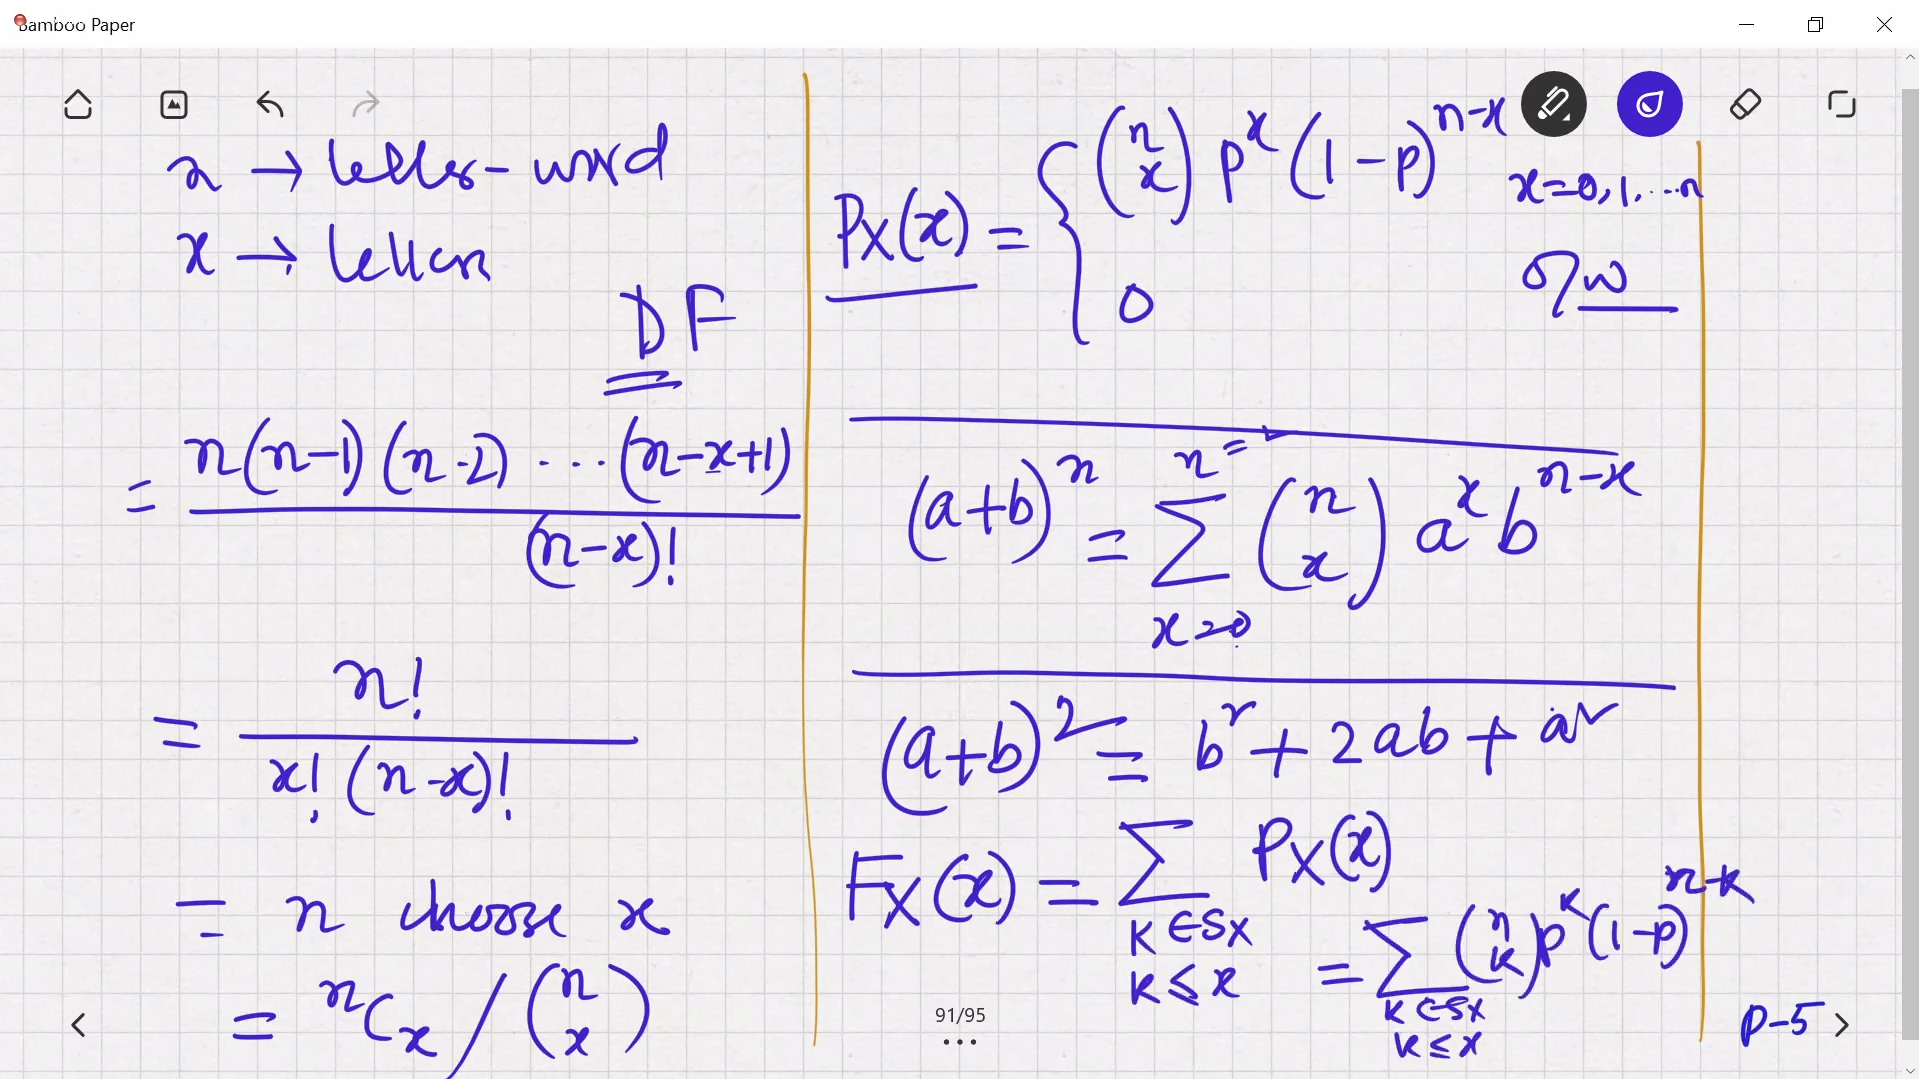 Bamboo Paper
n → letters-word
x → letters
DF
= n(n-1)(n-2)...(n-x+1) / (n-x)!
= n! / x!(n-x)!
= n choose x
= ⁿCₓ / (n x)
Pₓ(x) = { (n x) pˣ(1-p)ⁿ⁻ˣ x=0,1,...n
0 o/w
(a+b)ⁿ = ∑ₓ₌₀ⁿ (n x) aˣ bⁿ⁻ˣ
(a+b)² = b² + 2ab + a²
Fₓ(x) = ∑ Pₓ(x)
K ∈ Sx
K ≤ x
= ∑ (n k) pᵏ(1-p)ⁿ⁻ᵏ
K ∈ Sx
K ≤ x
91/95
P-5